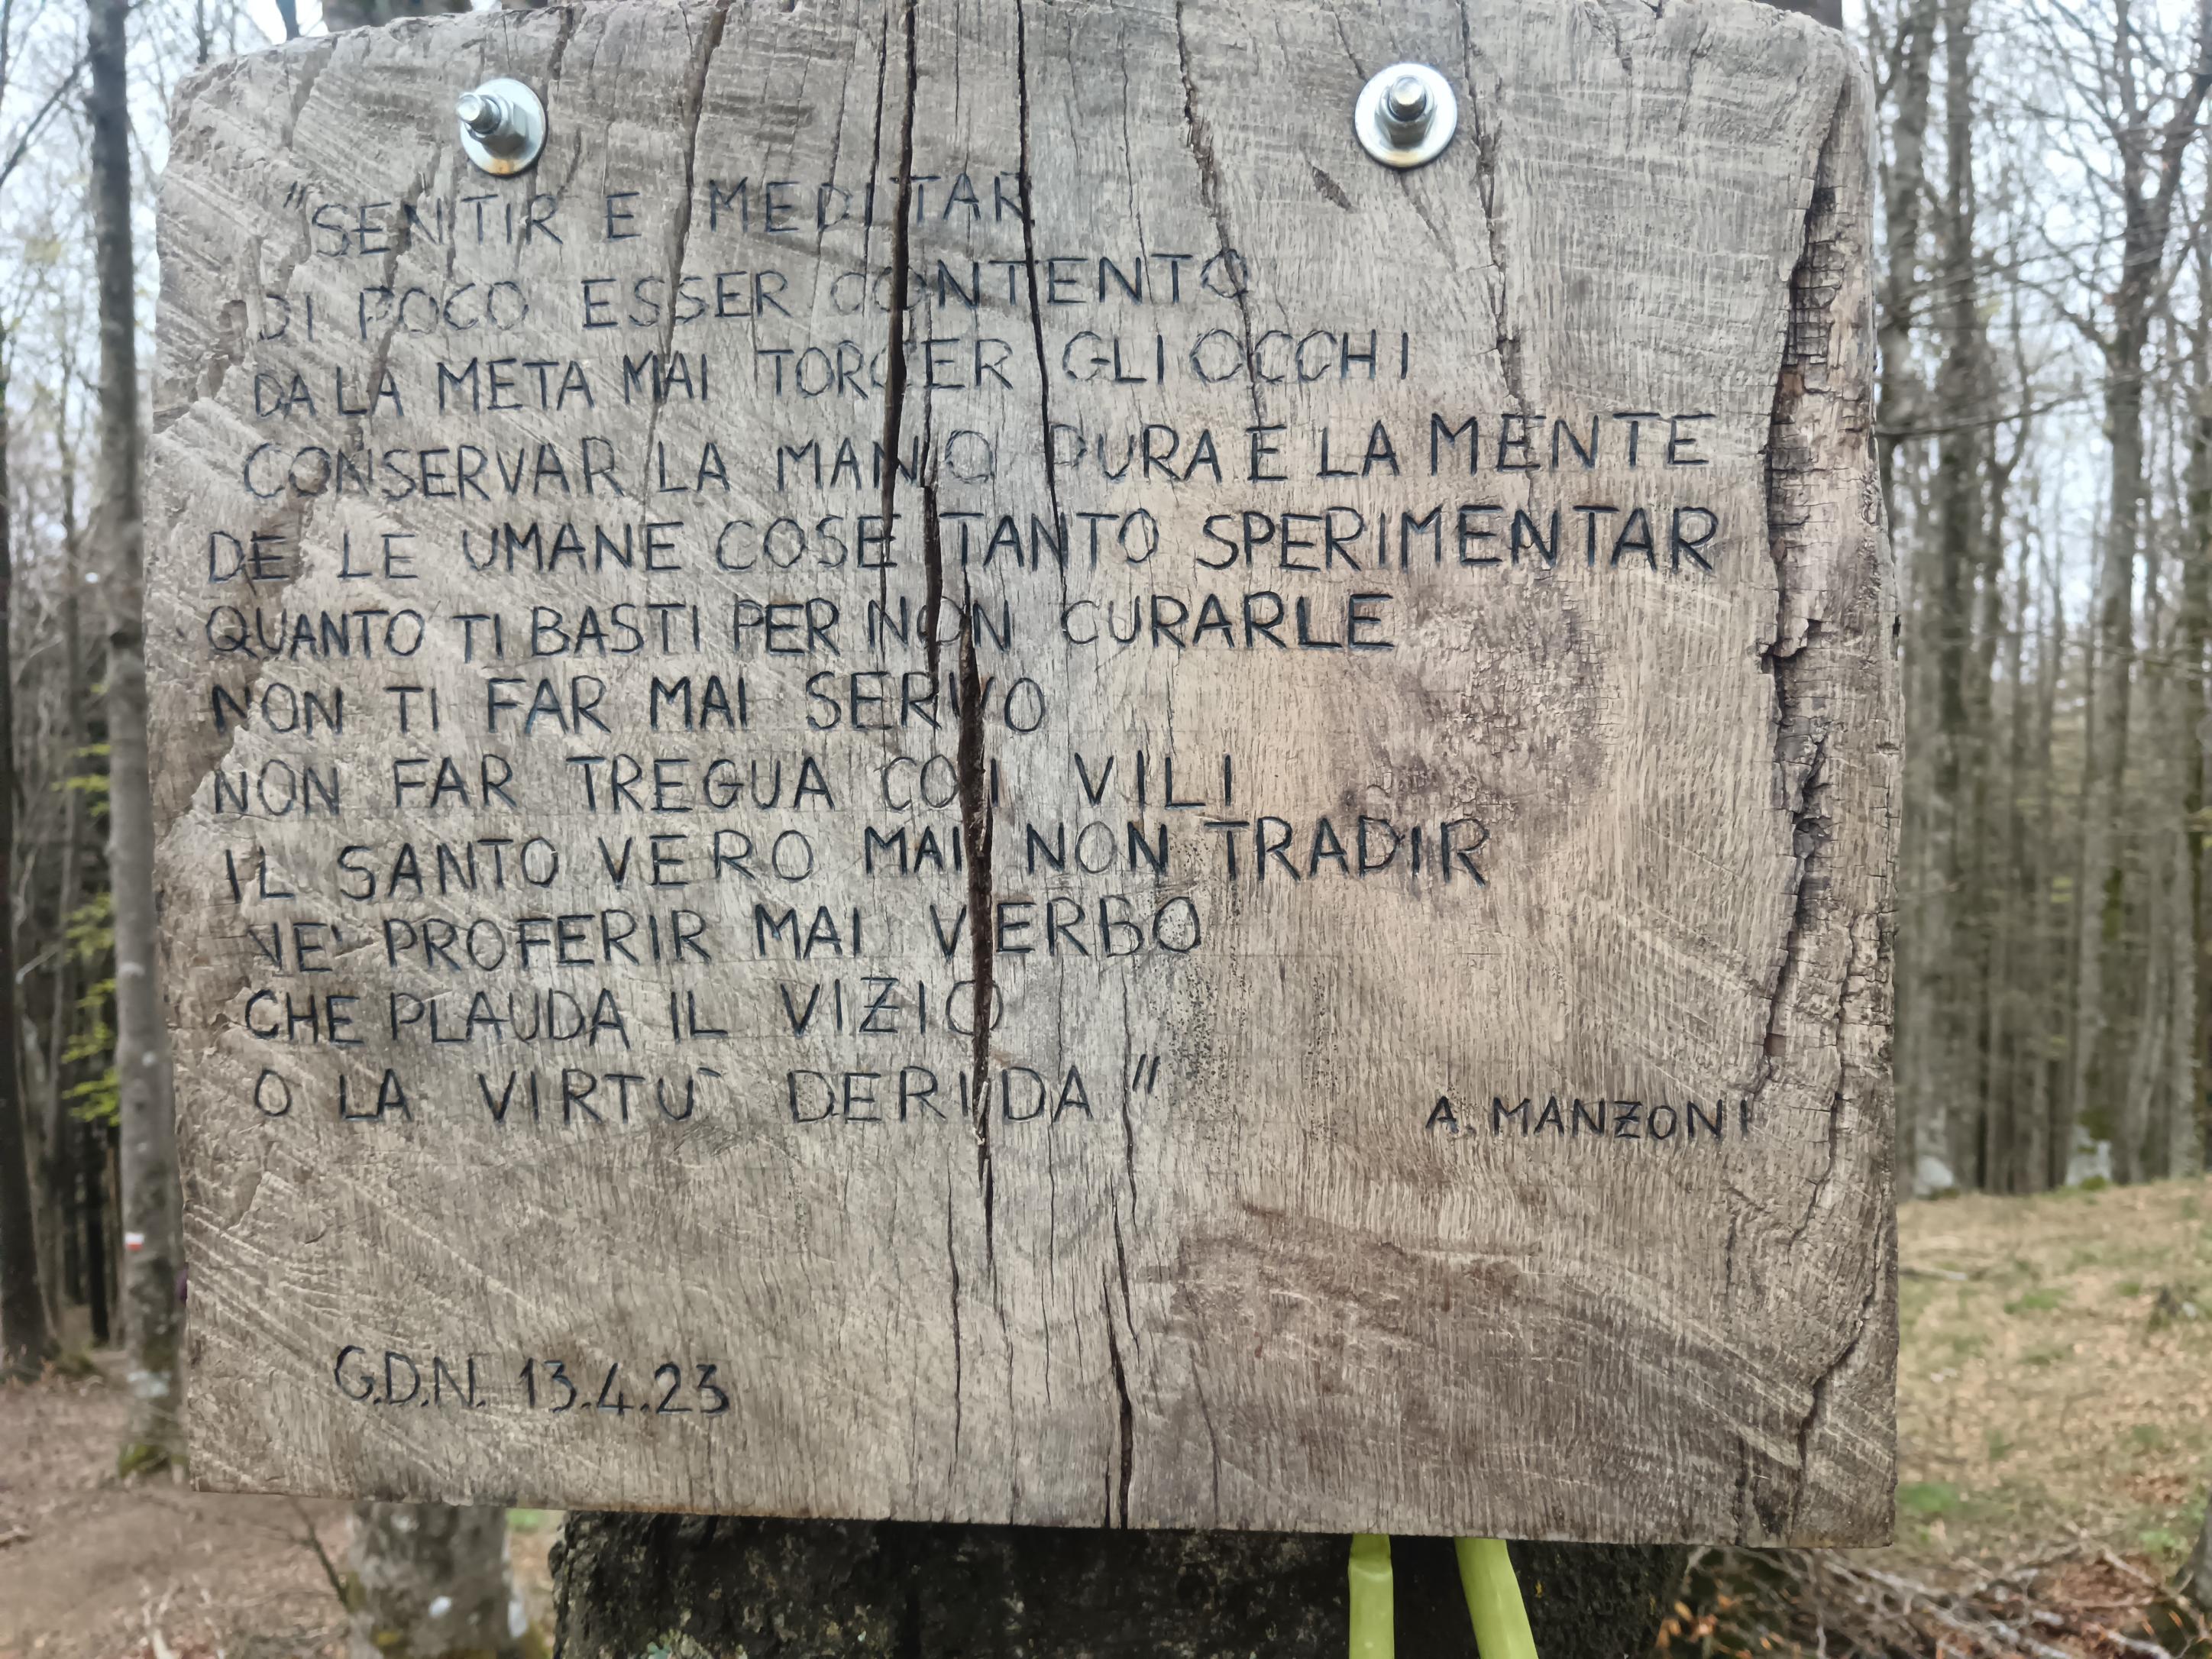 "SENTIR E MEDITAR
DI POCO ESSER CONTENTO
DA LA META MAI TORCER GLI OCCHI
CONSERVAR LA MANO PURA E LA MENTE
DE LE UMANE COSE TANTO SPERIMENTAR
QUANTO TI BASTI PER NON CURARLE
NON TI FAR MAI SERVO
NON FAR TREGUA COI VILI
IL SANTO VERO MAI NON TRADIR
NE' PROFERIR MAI VERBO
CHE PLAUDA IL VIZIO
O LA VIRTU` DERIDA"
A. MANZONI
G.D.N. 13.4.23